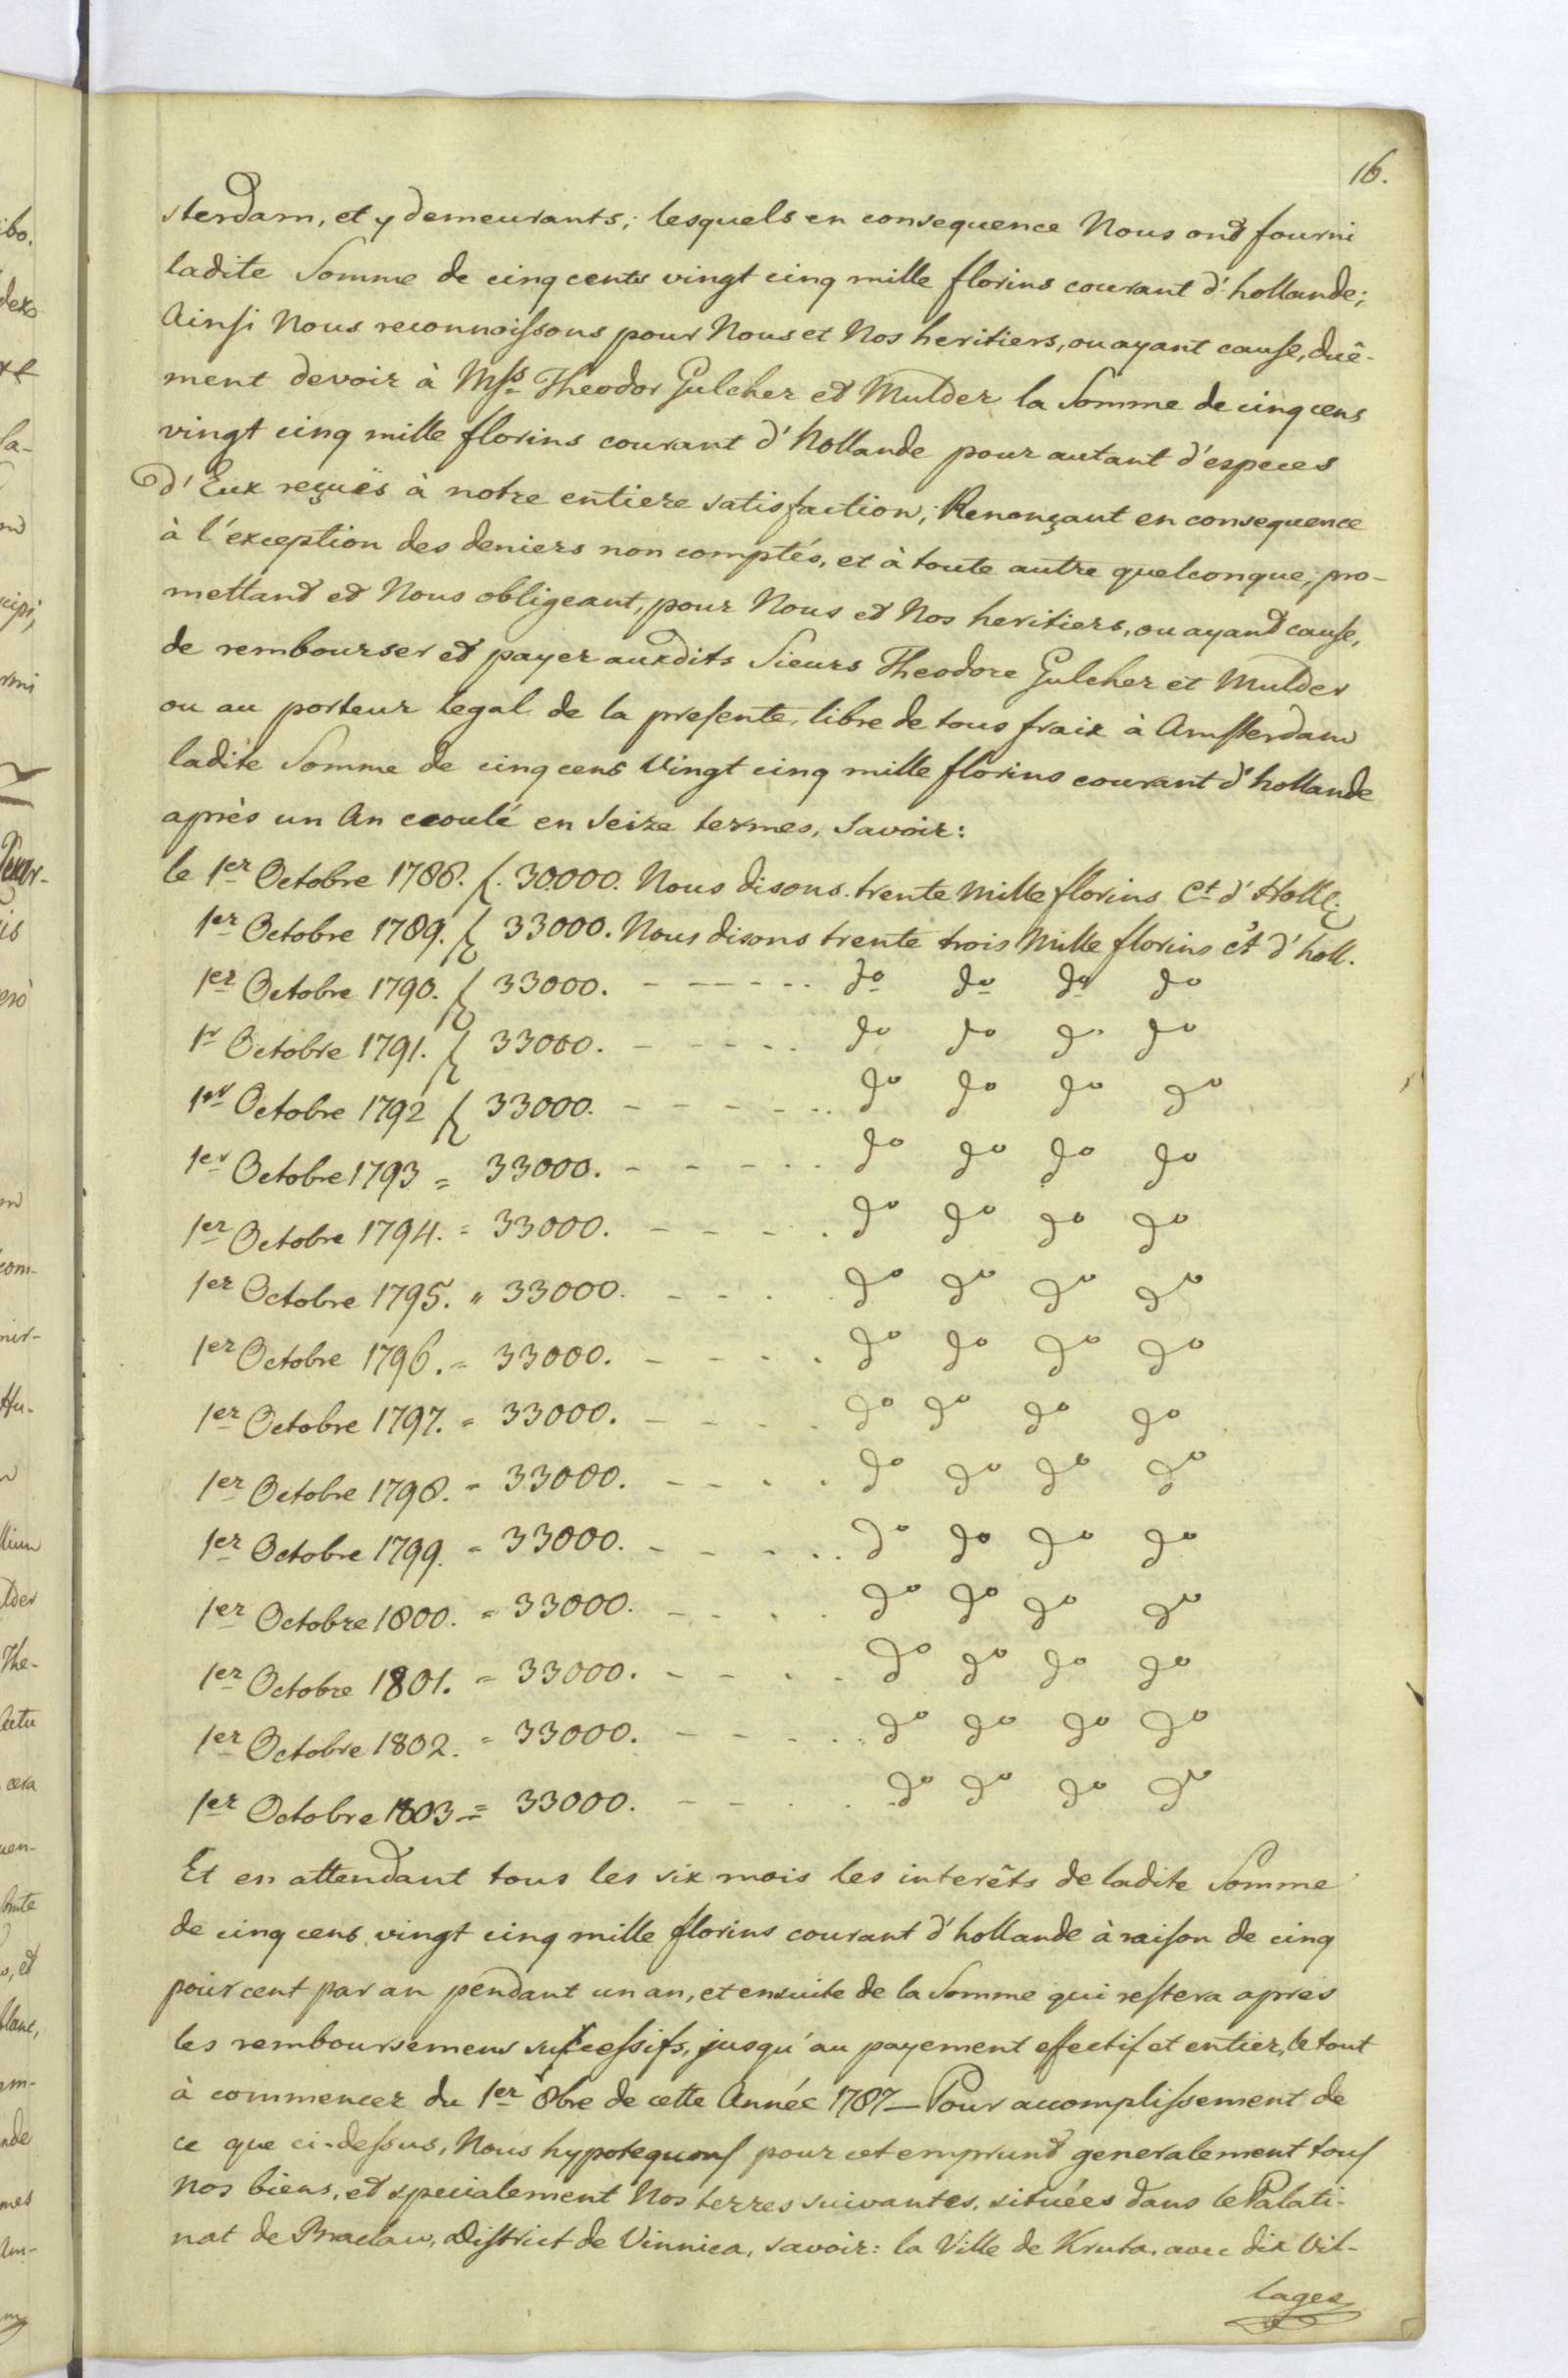 16.
sterdam, et y demeurants; lesquels en consequence Nous ont fourni
ladite Somme de cinq cents vingt cinq mille florins courant d'hollande;
Ainsi Nous reconnoissons pour Nous et Nos heritiers, ou ayant cause, duê-
ment devoir à Mss. Theodor Gulcher et Mulder la Somme de cinq cens
vingt cinq mille florins courant d'Hollande pour autant d'especes
d'Eux reçuës à notre entiere satisfaction; Renonçant en consequence
à l'exception des deniers non comptés, et à toute autre quelconque; pro-
mettant et Nous obligeant, pour Nous et Nos heritiers, ou ayant cause,
de rembourser et payer auxdits Sieurs Theodore Gulcher et Mulder
ou au porteur legal de la presente, libre de tous fraix à Amsterdam
ladite Somme de cinq cens Vingt cinq mille florins courant d'hollande
après un An ecoulé en seize termes, savoir:
le 1er Octobre 1788. f. 30000. Nous disons trente Mille florins Ct d'Holl.
1er Octobre 1789. f 33000. Nous disons trente trois Mille florins ct d'holl.
1er Octobre 1790. f 33000. - - - - - - do do do do
1r Octobre 1791. f 33000. - - - - - do do do do
1er Octobre 1792 f 33000. - - - - - do do do do
1er Octobre 1793 = 33000. - - - - - do do do do
1er Octobre 1794. = 33000. - - - - do do do do
1er Octobre 1795. " 33000. - - - - do do do do
1er Octobre 1796. = 33000. - - - - do do do do
1er Octobre 1797. = 33000. - - - - do do do do
1er Octobre 1798. = 33000. - - - - do do do do
1er Octobre 1799. = 33000. - - - - do do do do
1er Octobre 1800. = 33000. - - - - do do do do
1er Octobre 1801. = 33000. - - - - do do do do
1er Octobre 1802. = 33000. - - - - do do do do
1er Octobre 1803 = 33000. - - - - do do do do
Et en attendant tous les six mois les interêts de ladite Somme
de cinq cens vingt cinq mille florins courant d'hollande à raison de cinq
pour cent par an pendant un an, et ensuite de la Somme qui restera après
les remboursemens successifs, jusqu'au payement effectif et entier, le tout
à commencer du 1er 8bre de cette Année 1787 — Pour accomplissement de
ce que ci-dessus, Nous hypotequons pour cet emprunt generalement tous
Nos biens, et specialement Nos terres suivantes, situées dans le Palati-
nat de Braclaw, District de Vinnica, savoir: la Ville de Kruta, avec dix Vil-
lages